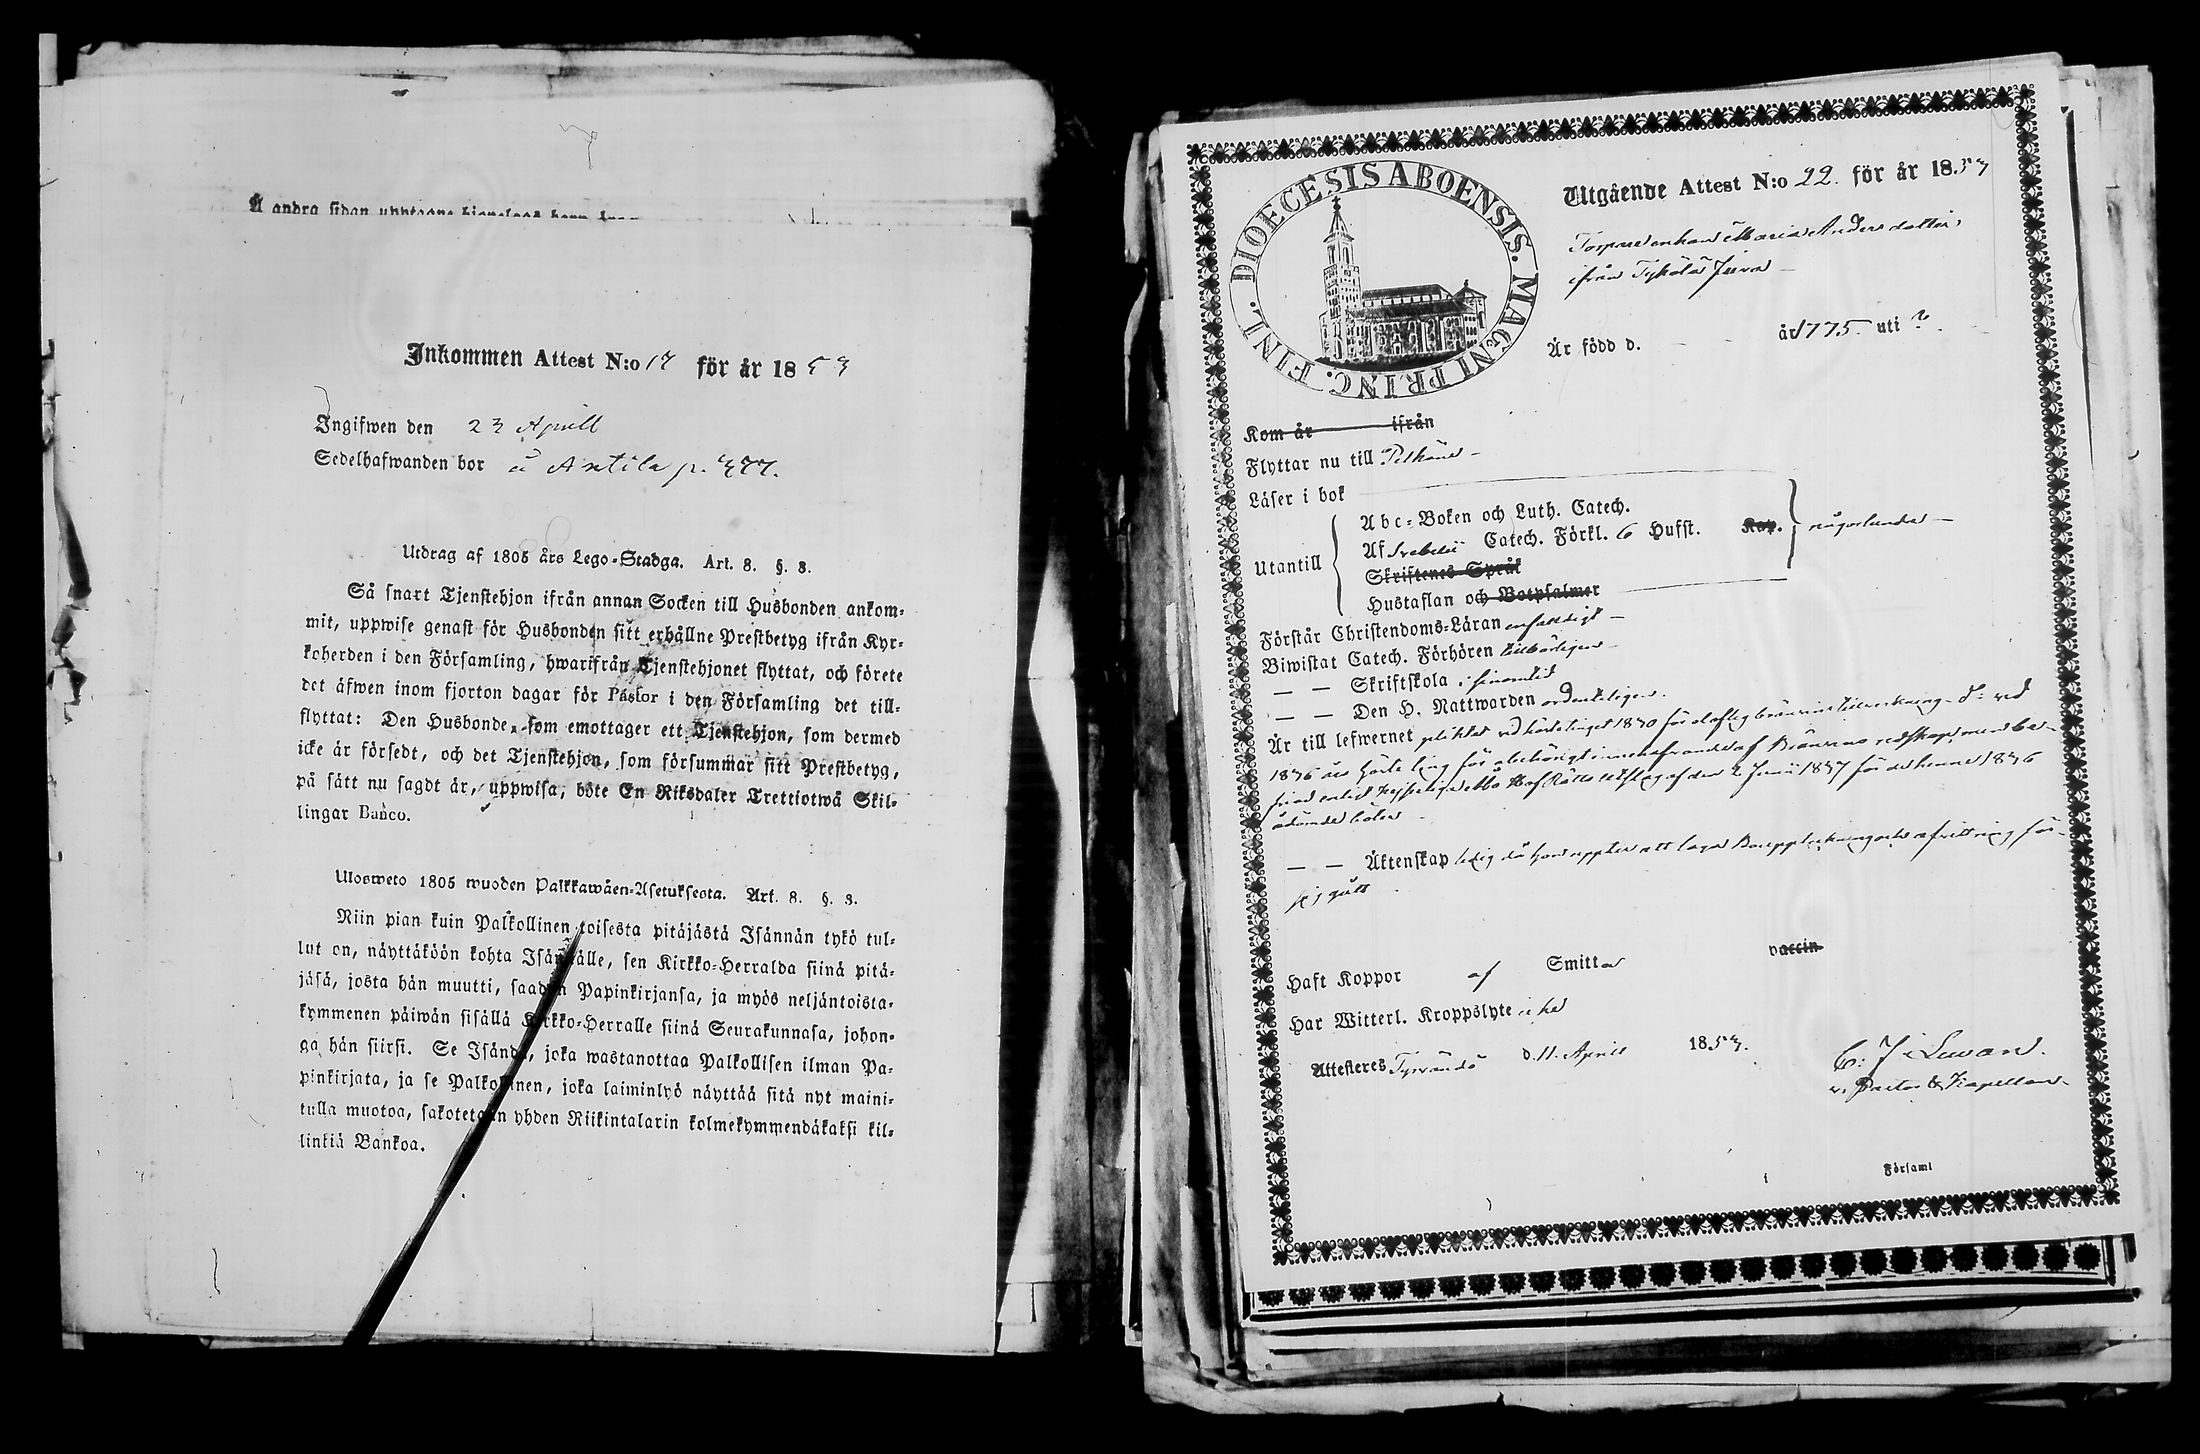 Å andra sidan upptagne
Inkommen Attest N:o 17 för år 1853
Ingifwen den 23 Aprill
Sedelhafwanden bor å Antila p. 377.
Utdrag af 1805 års Lego-Stadga. Art. 8. §. 3.
Så snart Tjenstehjon ifrån annan Socken till Husbonden ankom-
mit, uppwise genast för Husbonden sitt erhållne Prestbetyg ifrån Kyr-
koherden i den Församling, hwarifrån Tjenstehjonet flyttat, och förete
det äfwen inom fjorton dagar för Pastor i den Församling det till-
flyttat: Den Husbonde, som emottager ett Tjenstehjon, som dermed
icke är försedt, och det Tjenstehjon, som försummar sitt Prestbetyg,
på sätt nu sagdt är, uppwisa, böte En Riksdaler Trettiotwå Skil-
lingar Banco.
Ulosweto 1805 wuoden Palkkawäen-Asetuksesta. Art. 8. §. 3.
Niin pian kuin Palkollinen toisesta pitäjästä Isännän tykö tul-
lut on, näyttäköön kohta Isännälle, sen Kirkko-Herralda siinä pitä-
jäsä, josta hän muutti, saadun Papinkirjansa, ja myös neljäntoista-
kymmenen päiwän sisällä Kirkko-Herralle siinä Seurakunnasa, johon-
ga hän siirsi. Se Isändä, joka wastanottaa Palkollisen ilman Pa-
pinkirjata, ja se Palkollinen, joka laiminlyö näyttää sitä nyt maini-
tulla muotoa, sakotetaan yhden Riikintalarin kolmekymmendäkaksi kil-
linkiä Bankoa.
DIOECESIS ABOENSIS. MAGNI PRINC. FINL.
Utgående Attest N:o 22. för år 1853
Torpareenkan Maria Andersdotter
ifrån Tykölä Juva
Är född d. år 1775 uti ?
Kom år ifrån
Flyttar nu till Pelkäne
Läser i bok
Utantill
Abc-Boken och Luth. Catech.
Af Svebelii Catech. Förkl. 6 Hufst. Kap. någorlunda
Skriftenes Språk
Hustaflan och Botpsalmer
Förstår Christendoms-Läran enfaldigt
Biwistat Catech. Förhören tillbörligen
— — Skriftskola i sinom tid
— — Den H. Nattwarden ordentligen.
Är till lefwernet pliktat vid höstetinget 1830 för olaflig bränvins tillverkning. d:o vid
1836 års höste ting för obehörigt innehafvande af Bränvins redskap, men be-
friad enligt Kejserliga Åbo Hof Rätts utslag af den 2 Junii 1837 för de henne 1836
ådömde böter
— — Äktenskap ledig då hon uppter att laga Bouppteckning och afvittring för
sig gått
Haft Koppor af Smittor vaccin.
Har Witterl. Kroppslyte icke
Attesteres Tyrvändö d. 11. April 1853.
C. J. Levan.
v. Pastor & Kapellan.
Församl